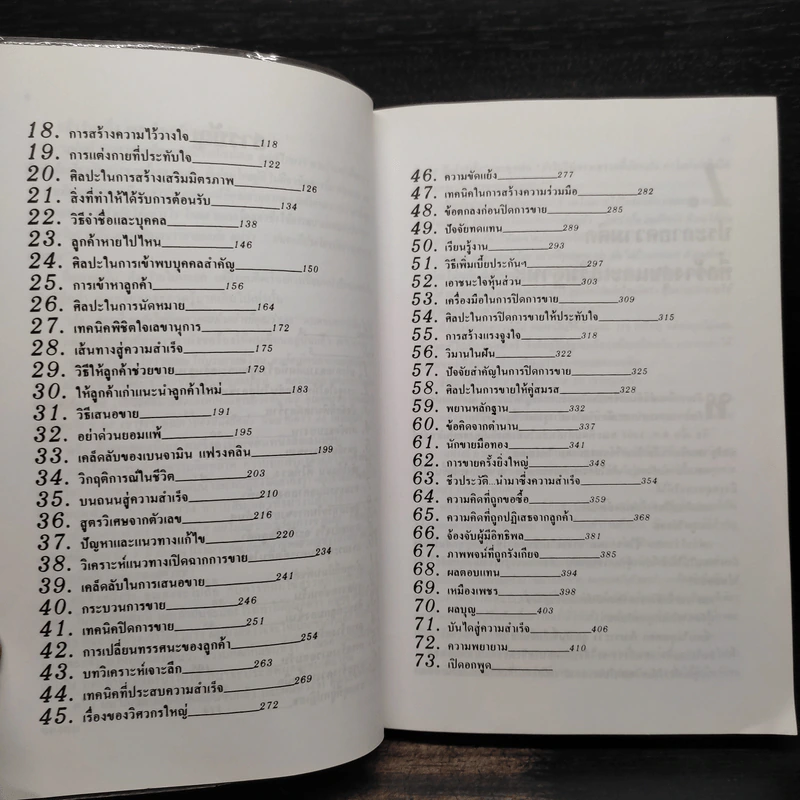 18. การสร้างความไว้วางใจ 118
19. การแต่งกายที่ประทับใจ 122
20. ศิลปะในการสร้างเสริมมิตรภาพ 126
21. สิ่งที่ทำให้ได้รับการต้อนรับ 134
22. วิธีจำชื่อและบุคคล 138
23. ลูกค้าหายไปไหน 146
24. ศิลปะในการเข้าพบบุคคลสำคัญ 150
25. การเข้าหาลูกค้า 156
26. ศิลปะในการนัดหมาย 164
27. เทคนิคพิชิตใจเลขานุการ 172
28. เส้นทางสู่ความสำเร็จ 175
29. วิธีให้ลูกค้าช่วยขาย 179
30. ให้ลูกค้าเก่าแนะนำลูกค้าใหม่ 183
31. วิธีเสนอขาย 191
32. อย่าด่วนยอมแพ้ 195
33. เคล็ดลับของเบนจามิน แฟรงคลิน 199
34. วิกฤติการณ์ในชีวิต 203
35. บนถนนสู่ความสำเร็จ 210
36. สูตรวิเศษจากตัวเลข 216
37. ปัญหาและแนวทางแก้ไข 220
38. วิเคราะห์แนวทางเปิดฉากการขาย 234
39. เคล็ดลับในการเสนอขาย 241
40. กระบวนการขาย 246
41. เทคนิคปิดการขาย 251
42. การเปลี่ยนทรรศนะของลูกค้า 254
43. บทวิเคราะห์เจาะลึก 263
44. เทคนิคที่ประสบความสำเร็จ 269
45. เรื่องของวิศวกรใหญ่ 272
46. ความขัดแย้ง 277
47. เทคนิคในการสร้างความร่วมมือ 282
48. ข้อตกลงก่อนปิดการขาย 285
49. ปัจจัยทดแทน 289
50. เรียนรู้งาน 293
51. วิธีเพิ่มเบี้ยประกันฯ 297
52. เอาชนะใจหุ้นส่วน 303
53. เครื่องมือในการปิดการขาย 309
54. ศิลปะในการปิดการขายให้ประทับใจ 315
55. การสร้างแรงจูงใจ 318
56. วิมานในฝัน 322
57. ปัจจัยสำคัญในการปิดการขาย 325
58. ศิลปะในการขายให้คู่สมรส 328
59. พยานหลักฐาน 332
60. ข้อคิดจากตำนาน 337
61. นักขายมือทอง 341
62. การขายครั้งยิ่งใหญ่ 348
63. ชีวประวัติ..นำมาซึ่งความสำเร็จ 354
64. ความคิดที่ถูกขอซื้อ 359
65. ความคิดที่ถูกปฏิเสธจากลูกค้า 368
66. จ้องจับผู้มีอิทธิพล 381
67. ภาพพจน์ที่ถูกรังเกียจ 385
68. ผลตอบแทน 394
69. เหมืองเพชร 398
70. ผลบุญ 403
71. บันไดสู่ความสำเร็จ 406
72. ความพยายาม 410
73. เปิดอกพูด